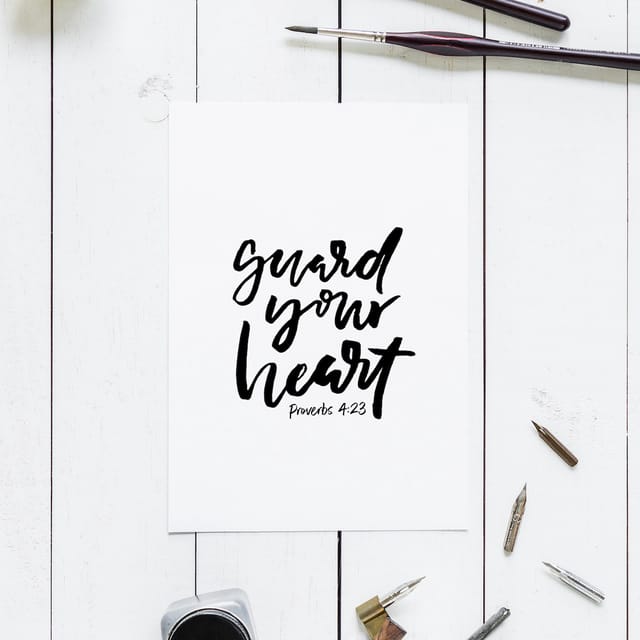 guard
your
heart
Proverbs 4:23